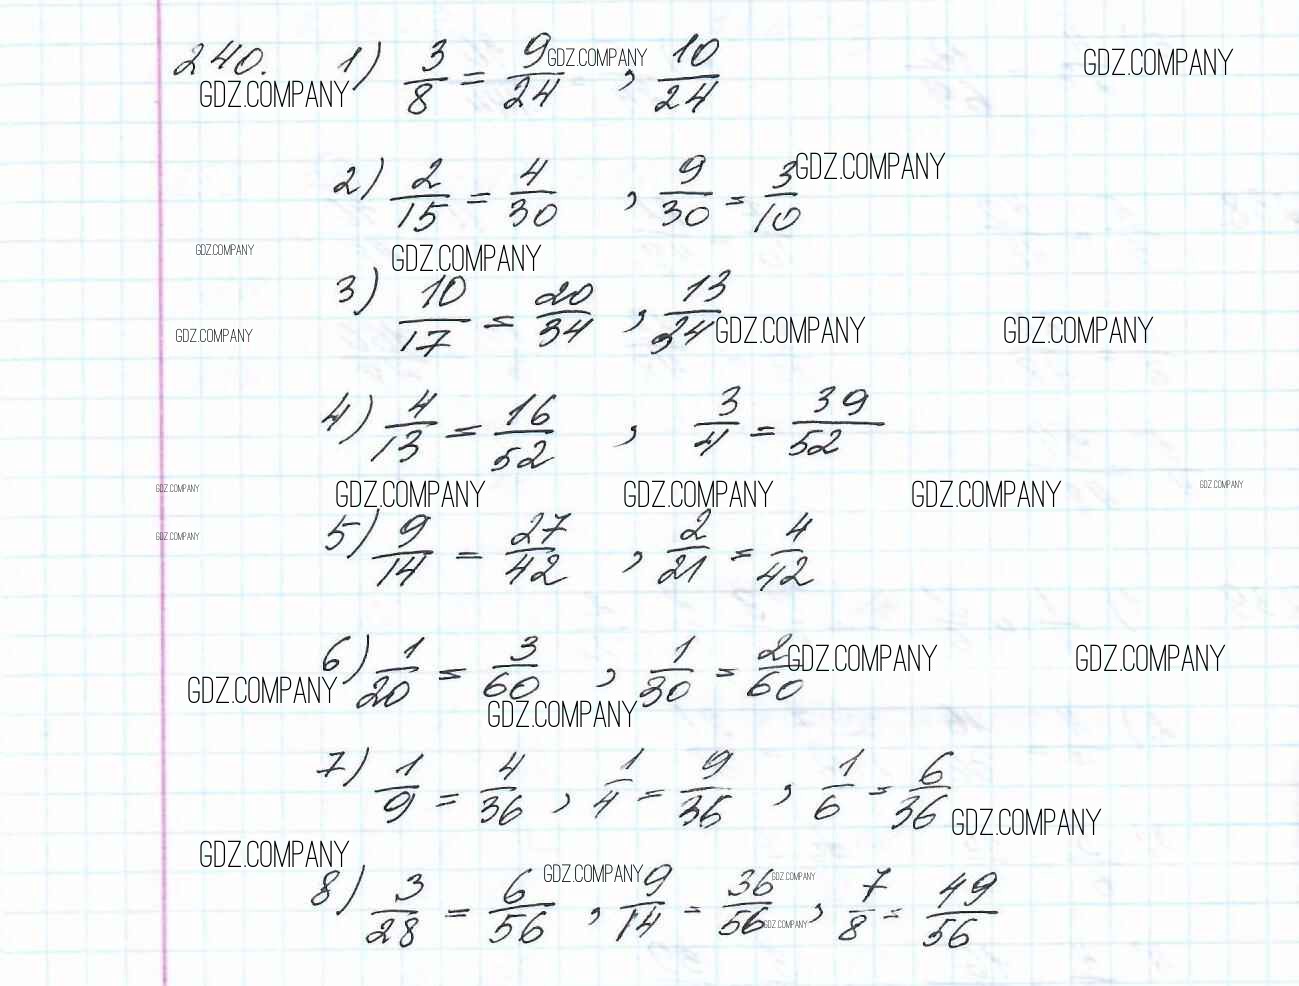 240. 1) 3/8 = 9/24 GDZ.COMPANY , 10/24 GDZ.COMPANY
GDZ.COMPANY
2) 2/15 = 4/30 , 9/30 = 3/10 GDZ.COMPANY
GDZ.COMPANY GDZ.COMPANY
3) 10/17 = 20/34 , 13/34 GDZ.COMPANY GDZ.COMPANY
GDZ.COMPANY
4) 4/13 = 16/52 , 3/4 = 39/52
GDZ.COMPANY GDZ.COMPANY GDZ.COMPANY GDZ.COMPANY GDZ.COMPANY
GDZ.COMPANY
5) 9/14 = 27/42 , 2/21 = 4/42
6) 1/20 = 3/60 , 1/30 = 2/60 GDZ.COMPANY GDZ.COMPANY
GDZ.COMPANY GDZ.COMPANY
7) 1/9 = 4/36 , 1/4 = 9/36 , 1/6 = 6/36 GDZ.COMPANY
GDZ.COMPANY GDZ.COMPANY GDZ.COMPANY
8) 3/28 = 6/56 , 9/14 = 36/56 , 7/8 = 49/56
GDZ.COMPANY